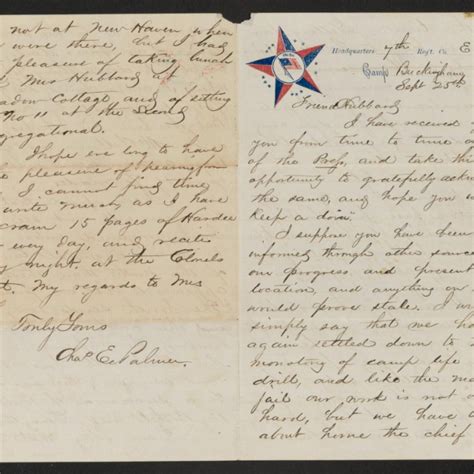 not at New Haven when
were there, but I had
pleasure of taking lunch
Mrs Hubbard at
Cottage and of sitting
No 11 at the Second
gregational.
I hope ere long to have
the pleasure of hearing from
I cannot find time
write much, as I have
cram 15 pages of Hardee
way day, and recite
night, at the Colonels
My regards to Mrs
Truly Yours
Chas E. Palmer.
Headquarters 7th Regt. Co. E
Camp Buckingham
Sept 25th
Friend Hubbard
I have received
you from time to time
of the Press, and take this
opportunity to gratefully
the same, and hope you
keep a doin'
I suppose you have been
informed through other
our progress, and present
location, and anything
would prove stale. I
simply say that we
again settled down to
monotony of camp life
drill, and like the
jail our work is not
hard, but we have
about home the chief